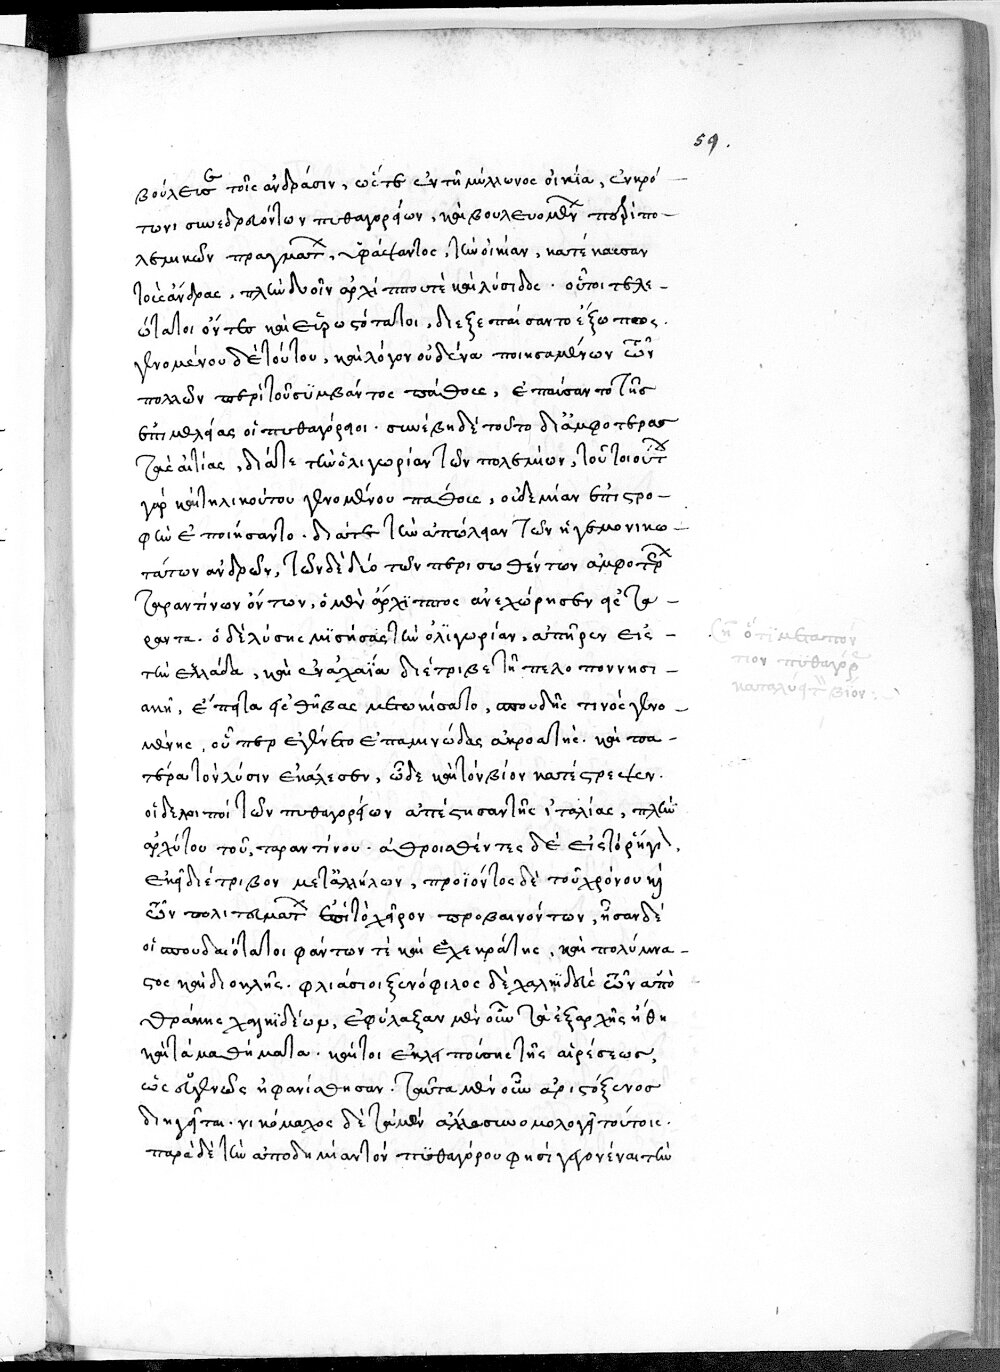 59.
βούλευσ τοῖς ἀνδράσιν, ὥστε ἐν τῇ μύλωνος οἰκία, ἐν κρό-
τωνι συνεδρευόντων πυθαγορείων, καὶ βουλευομένων περὶ πο-
λεμικῶν πραγμάτων, ὑφάψαντες, τὴν οἰκίαν, κατέκαυσαν
τοὺς ἄνδρας, πλὴν δυοῖν ἀρχίππου τὲ καὶ λύσιδος. οὗτοι τελε-
ώτατοι ὄντες καὶ εὐρωστότατοι, διεξεπαίσαντο ἔξω πως.
γενομένου δὲ τούτου, καὶ λόγον οὐδένα ποιησαμένων τῶν
πολλῶν περὶ τοῦ συμβάντος πάθους, ἐπαύσαντο τῆς
ἐπιμελείας οἱ πυθαγόρειοι. συνέβη δὲ τοῦτο δι' ἀμφοτέρας
τὰς αἰτίας, διά τε τὴν ὀλιγωρίαν τῶν πολεμίων, τοῦ τοιούτου
γὰρ καὶ τηλικούτου γενομένου πάθους, οὐδεμίαν ἐπιστρο-
φὴν ἐποιήσαντο. διά τε τὴν ἀπώλειαν τῶν ἡγεμονικω-
τάτων ἀνδρῶν, τῶν δὲ δύο τῶν περισωθέντων ἀμφοτέρων
ταραντίνων ὄντων, ὁ μὲν ἄρχιππος ἀνεχώρησεν εἰς τά-
ραντα. ὁ δὲ λύσις μισήσας τὴν ὀλιγωρίαν, ἀπῆρεν εἰς
τὴν ἑλλάδα, καὶ ἐν ἀχαΐα διέτριβε τῇ πελοποννησι-
ακῇ, ἔπειτα εἰς θήβας μετωκίσατο, σπουδῆς τινὸς γενο-
μένης, οὗπερ ἐγένετο ἐπαμινώδας ἀκροατής. καὶ πα-
τέρα τὸν λύσιν ἐκάλεσεν, ὧδε καὶ τὸν βίον κατέστρεψεν.
οἱ δὲ λοιποὶ τῶν πυθαγορείων ἀπέστησαν τῆς ἰταλίας, πλὴν
ἀρχύτου τοῦ, ταραντίνου. ἀθροισθέντες δὲ εἰς τὸ ῥήγι,
ἐκεῖ διέτριβον μετ' ἀλλήλων, προϊόντος δὲ τοῦ χρόνου καὶ
τῶν πολιτευμάτων ἐπὶ τὸ χεῖρον προβαινόντων, ἦσαν δὲ
οἱ σπουδαιότατοι φάντων τὲ καὶ ἐχεκράτης, καὶ πολύμνα-
στος καὶ διοκλῆς. φλιάσιοι ξενόφιλος δὲ χαλκιδεὺς τῶν ἀπὸ
θράκης χαλκιδέων, ἐφύλαξαν μὲν οὖν τὰ ἐξαρχῆς ἤθη
καὶ τὰ μαθήματα. καί τοι ἐκλειπούσης τῆς αἱρέσεως,
ὡς εὐγενῶς ἠφανίσθησαν. ταῦτα μὲν οὖν ἀριστόξενος
διηγεῖται. νικόμαχος δὲ τὰ μὲν ἄλλα συνομολογεῖ τούτοις.
παρὰ δὲ τὴν ἀποδημίαν τὸν πυθαγόρου φησὶ γεγονέναι τὴν
ὅτι μεταπόν
τιον πυθαγόρ
καταλύει τὸν βίον.